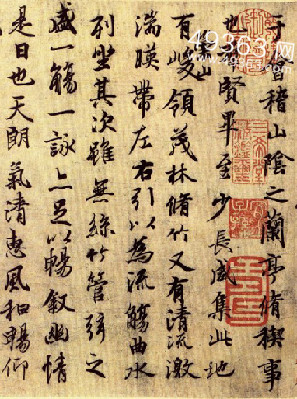 49363网
www.49363.com
于稽山陰之蘭亭脩稧事
也賢畢至少長咸集此地
有山峻領茂林脩竹又有清流激
湍暎帶左右引以為流觴曲水
列坐其次雖無絲竹管弦之
盛一觴一詠亦足以暢敘幽情
是日也天朗氣清惠風和暢仰